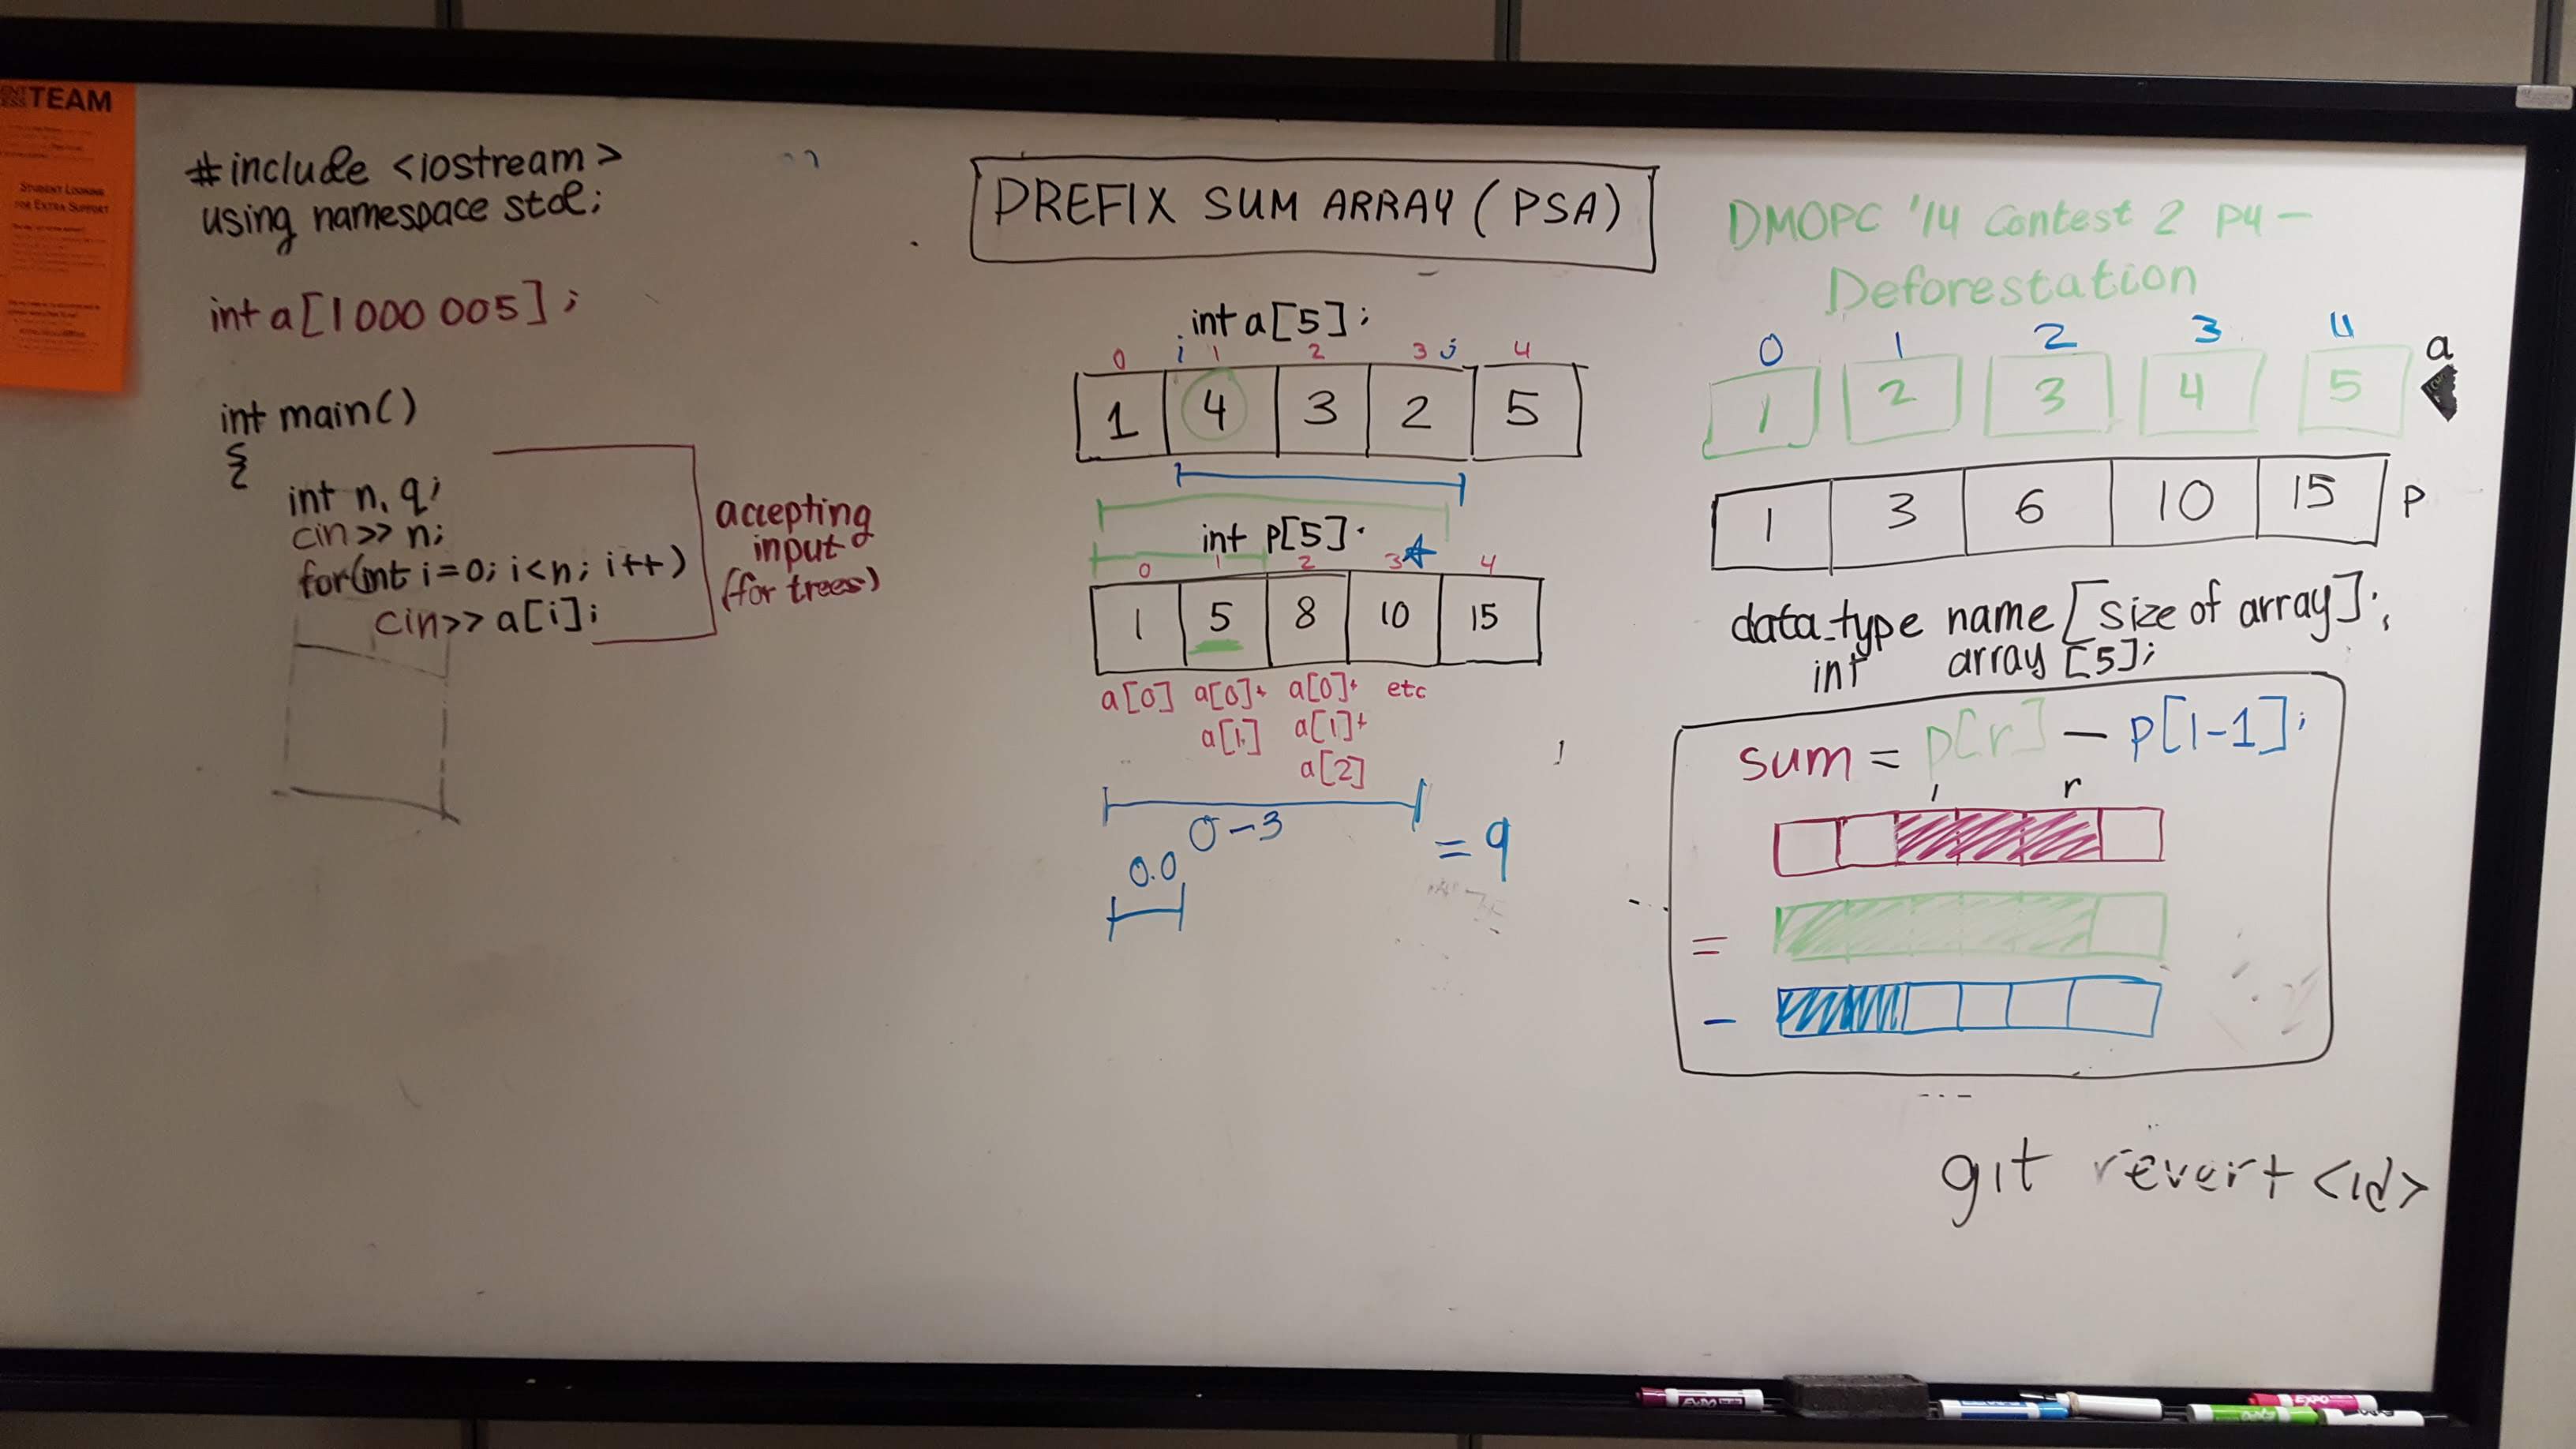 TEAM
STUDENT LOOKING
FOR EXTRA SUPPORT
#include <iostream>
using namespace std;
int a[1000 005];
int main()
{
int n, q;
cin>> n;
for(int i=0; i<n; i++)
cin>> a[i];
accepting
input
(for trees)
PREFIX SUM ARRAY (PSA)
int a[5];
0 i 1 2 3 j 4
1 4 3 2 5
int p[5].
0 1 2 3 4
1 5 8 10 15
a[0] a[0]+ a[0]+ etc
a[1] a[1]+
a[2]
0-3
0.0
= 9
DMOPC '14 Contest 2 P4 –
Deforestation
0 1 2 3 4
1 2 3 4 5
a
1 3 6 10 15 p
data_type name [size of array];
int array [5];
sum = p[r] – p[l-1];
l r
=
–
git revert <id>
EXPO